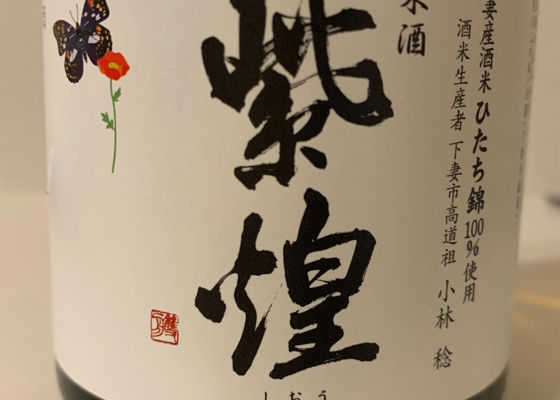 妻産酒米ひたち錦100%使用
酒米生産者 下妻市高道祖 小林 稔
米酒
紫煌
しおう